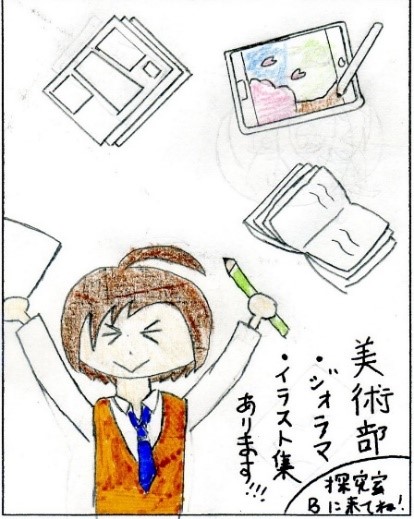 美術部
・ジオラマ
・イラスト集
あります!!!
探究室
Bに来てね!